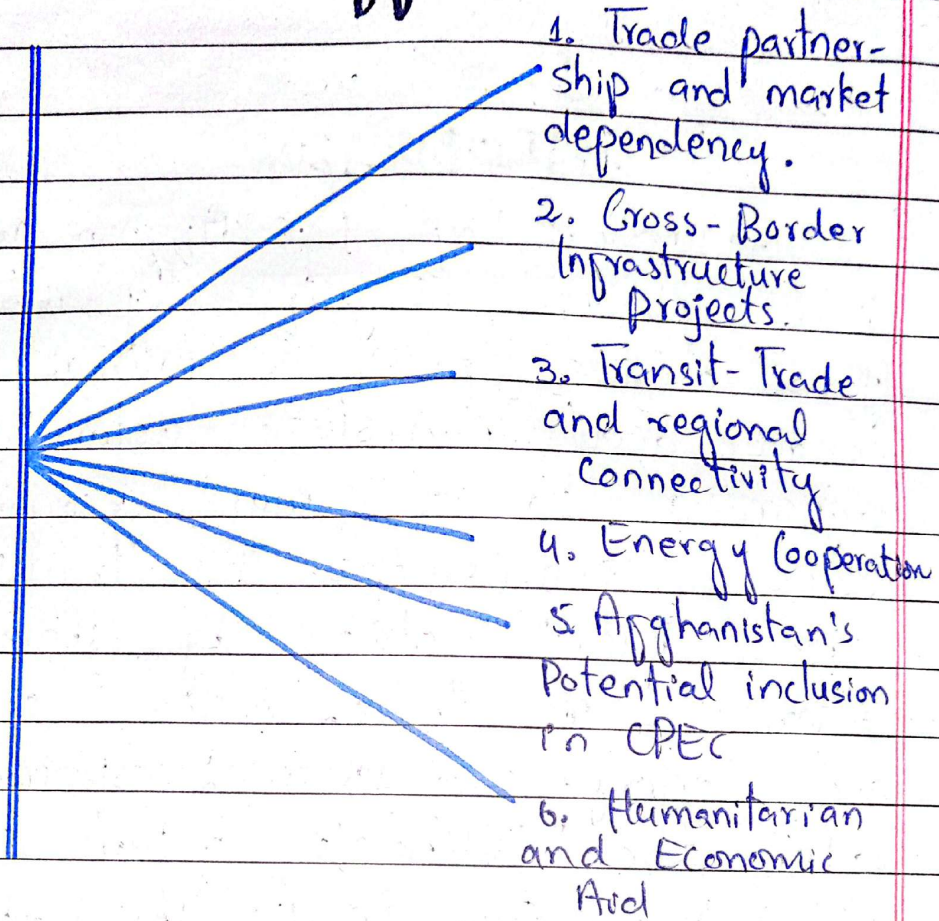 1. Trade partner-
ship and market
dependency.
2. Cross-Border
Infrastructure
Projects.
3. Transit-Trade
and regional
Connectivity
4. Energy Cooperation
5. Afghanistan's
Potential inclusion
in CPEC
6. Humanitarian
and Economic
Aid